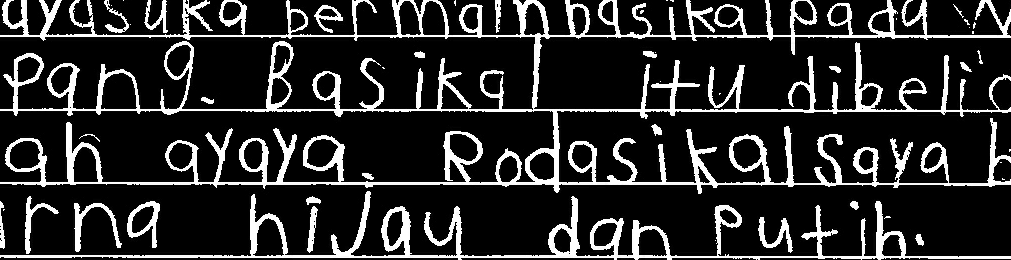 ayasuka bermainbasikalpada w
pang. Basikal itu dibelio
ah ayaya. Rodasikalsaya b
arna hijau dan Putih.